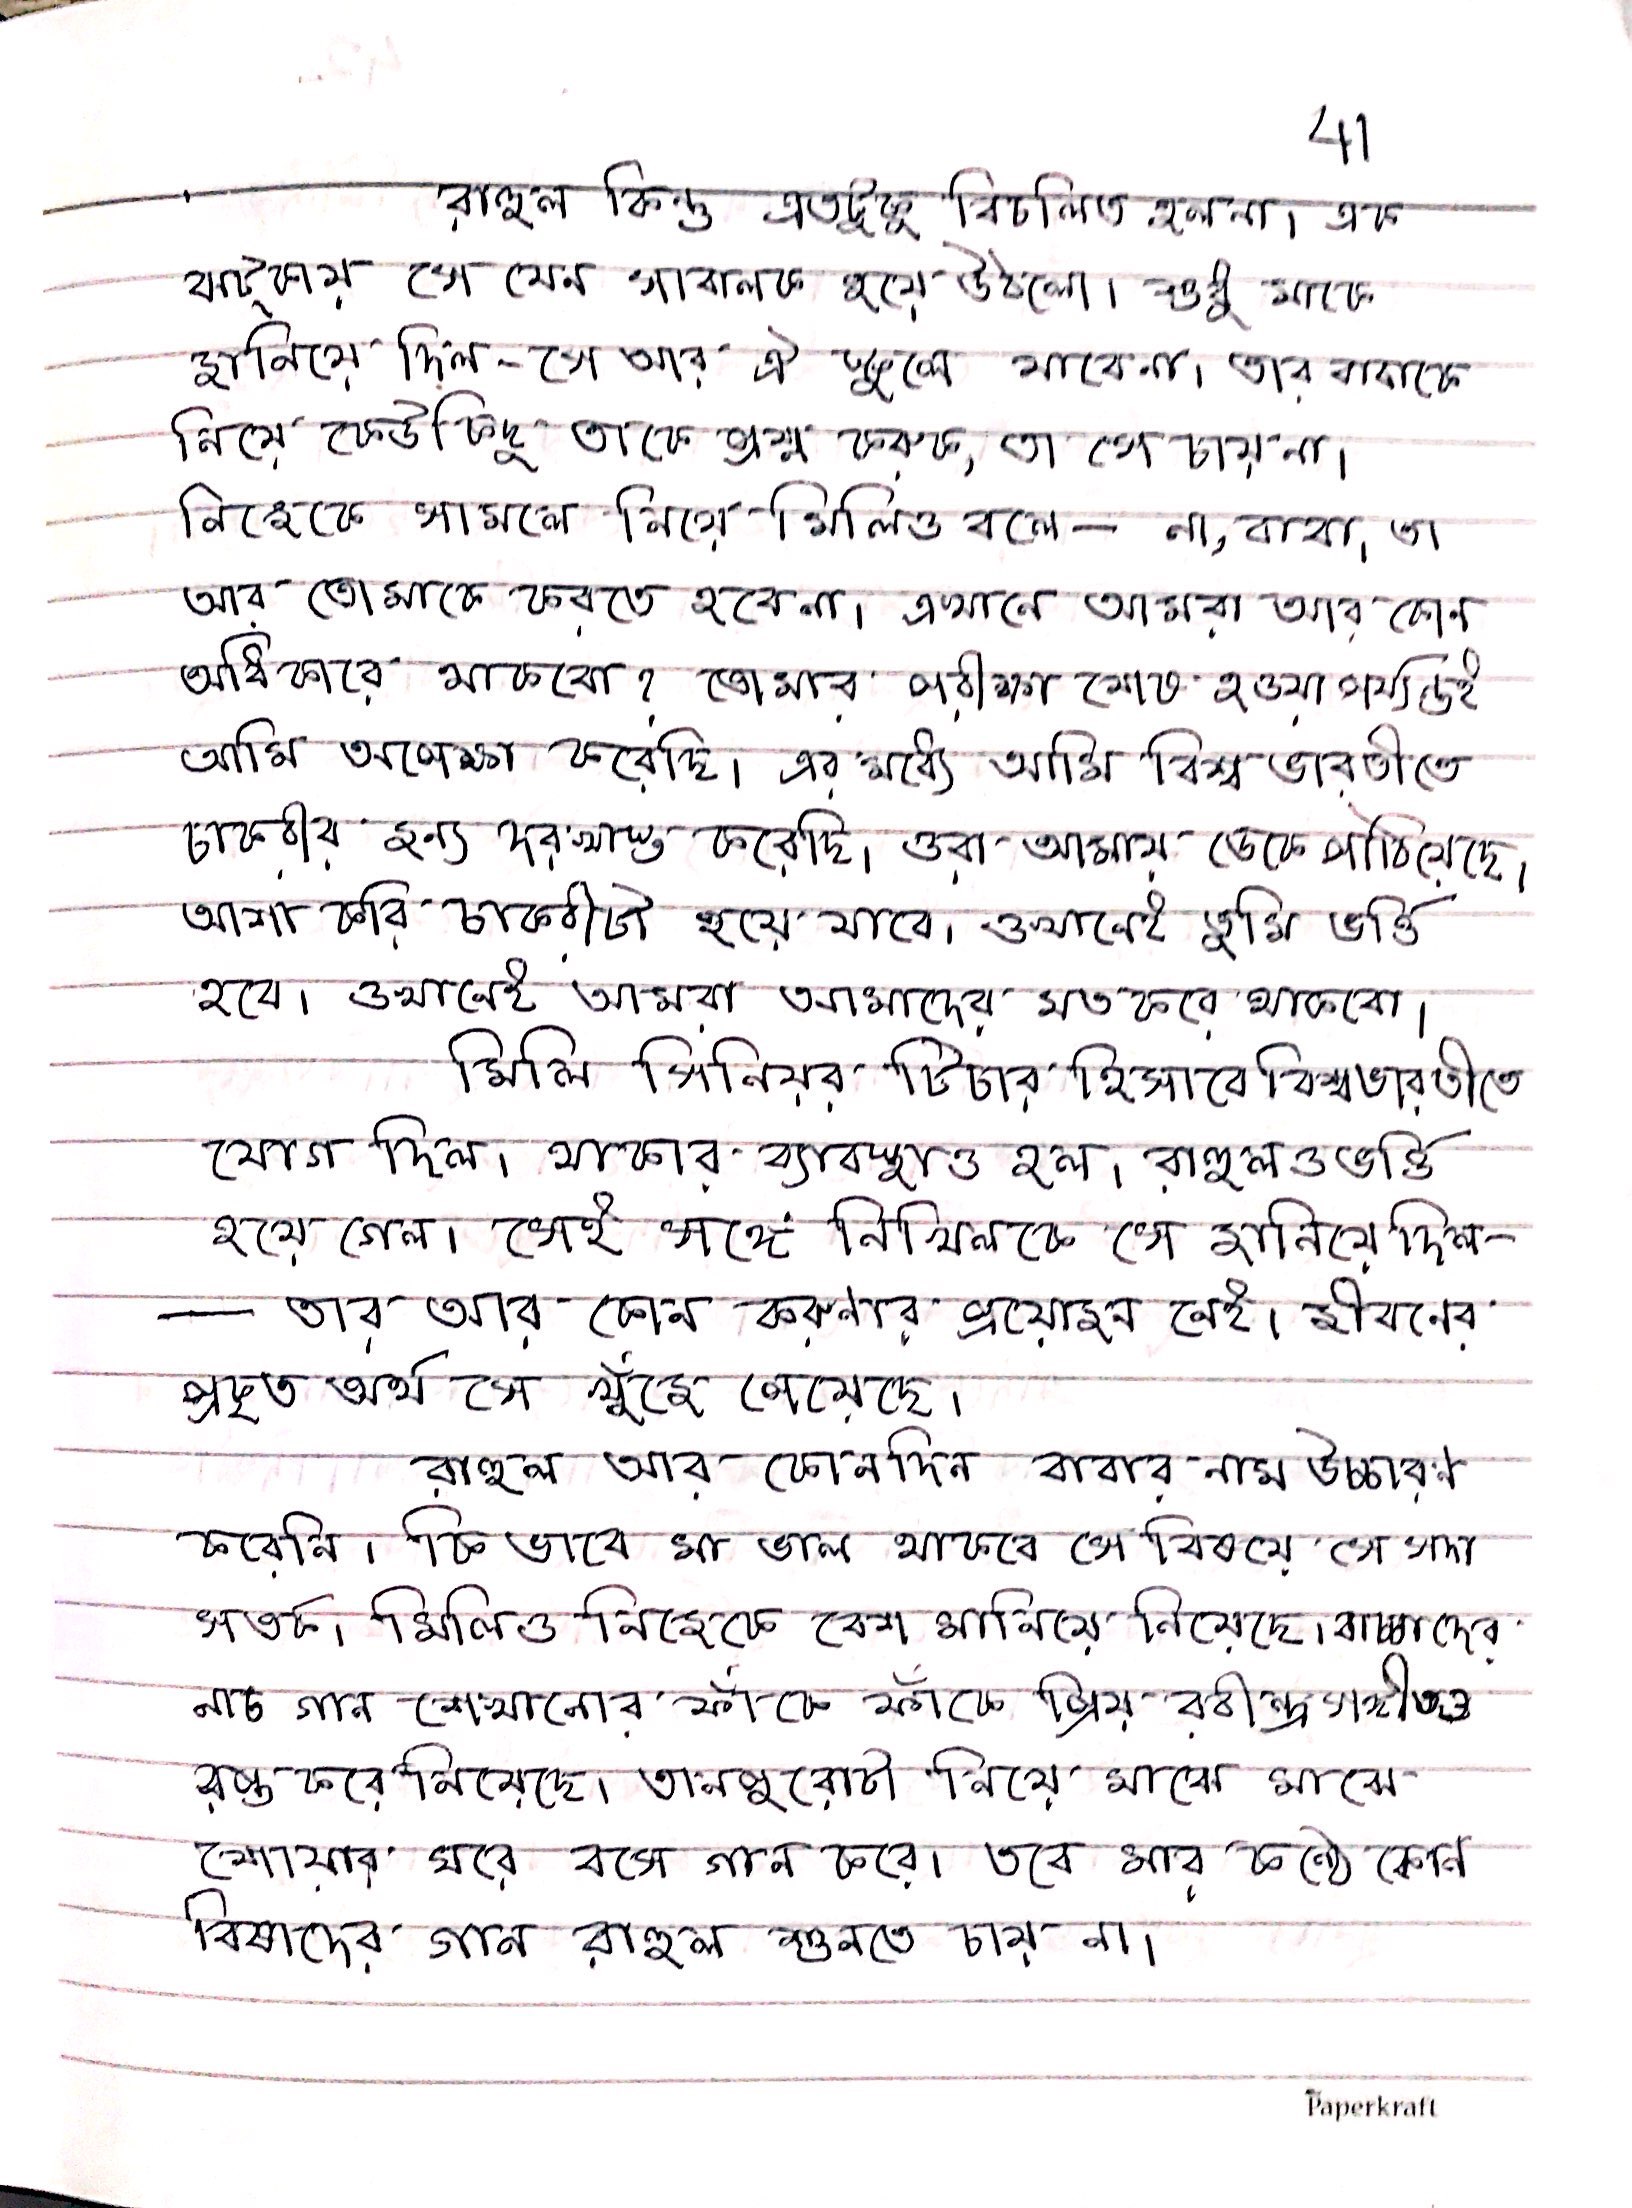 41
রাহুল কিন্তু এতটুকু বিচলিত হলনা। এক
ঝট্কায় সে যেন সাবালক হয়ে উঠলো। শুধু মাকে
জানিয়ে দিল - সে আর ঐ স্কুলে যাবেনা। তার বাবাকে
নিয়ে কেউকিছু তাকে প্রশ্ন করুক, তা সে চায়না।
নিজেকে সামলে নিয়ে মিলিও বলে — না, বাবা, তা
আর তোমাকে করতে হবেনা। এখানে আমরা আর কোন
অধিকারে থাকবো? তোমার পরীক্ষা শেষ হওয়া পর্য্যন্তই
আমি অপেক্ষা করেছি। এর মধ্যে আমি বিশ্ব ভারতীতে
চাকরীর জন্য দরখাস্ত করেছি। ওরা আমায় ডেকে পাঠিয়েছে।
আশা করি চাকরীটা হয়ে যাবে। ওখানেই তুমি ভর্ত্তি
হবে। ওখানেই আমরা আমাদের মত করে থাকবো।
মিলি সিনিয়র টিচার হিসাবে বিশ্বভারতীতে
যোগ দিল। থাকার ব্যাবস্থাও হল। রাহুলও ভর্ত্তি
হয়ে গেল। সেই সঙ্গে নিখিলকে সে জানিয়ে দিল —
— তার আর কোন করুণার প্রয়োজন নেই। জীবনের
প্রকৃত অর্থ সে খুঁজে পেয়েছে।
রাহুল আর কোনদিন বাবার নাম উচ্চারণ
করেনি। কি ভাবে মা ভাল থাকবে সে বিষয়ে সে সদা
সতর্ক। মিলিও নিজেকে বেশ মানিয়ে নিয়েছে। বাচ্চাদের
নাচ গান শেখানোর ফাঁকে ফাঁকে প্রিয় রবীন্দ্রসঙ্গীতও
রপ্ত করে নিয়েছে। তানপুরোটা নিয়ে মাঝে মাঝে
শোয়ার ঘরে বসে গান করে। তবে মার কণ্ঠে কোন
বিষাদের গান রাহুল শুনতে চায় না।
Paperkraft